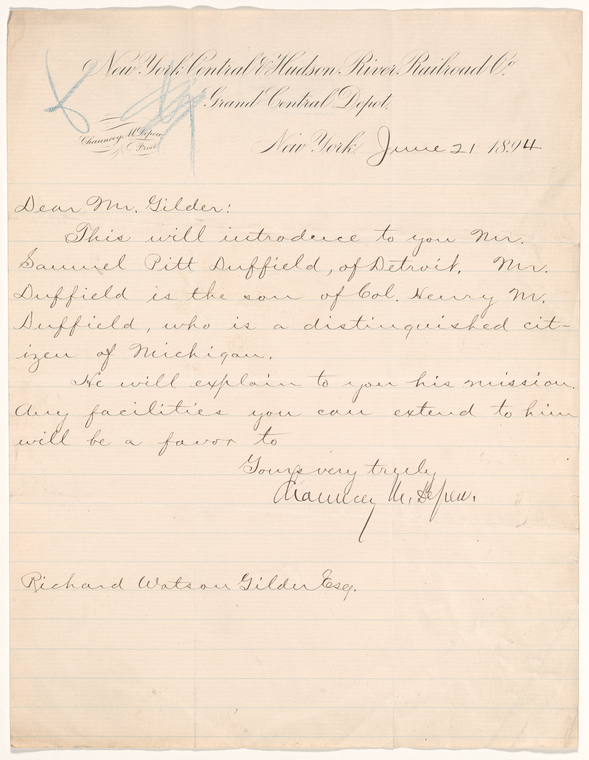 New York Central & Hudson River Railroad Co
Grand Central Depot.
Chauncey M. Depew
Prest.
New York June 21 1894
Dear Mr. Gilder:
This will introduce to you Mr.
Samuel Pitt Duffield, of Detroit. Mr.
Duffield is the son of Col. Henry M.
Duffield, who is a distinguished cit-
izen of Michigan.
He will explain to you his mission.
Any facilities you can extend to him
will be a favor to
Yours very truly
Chauncey M. Depew.
Richard Watson Gilder Esq.